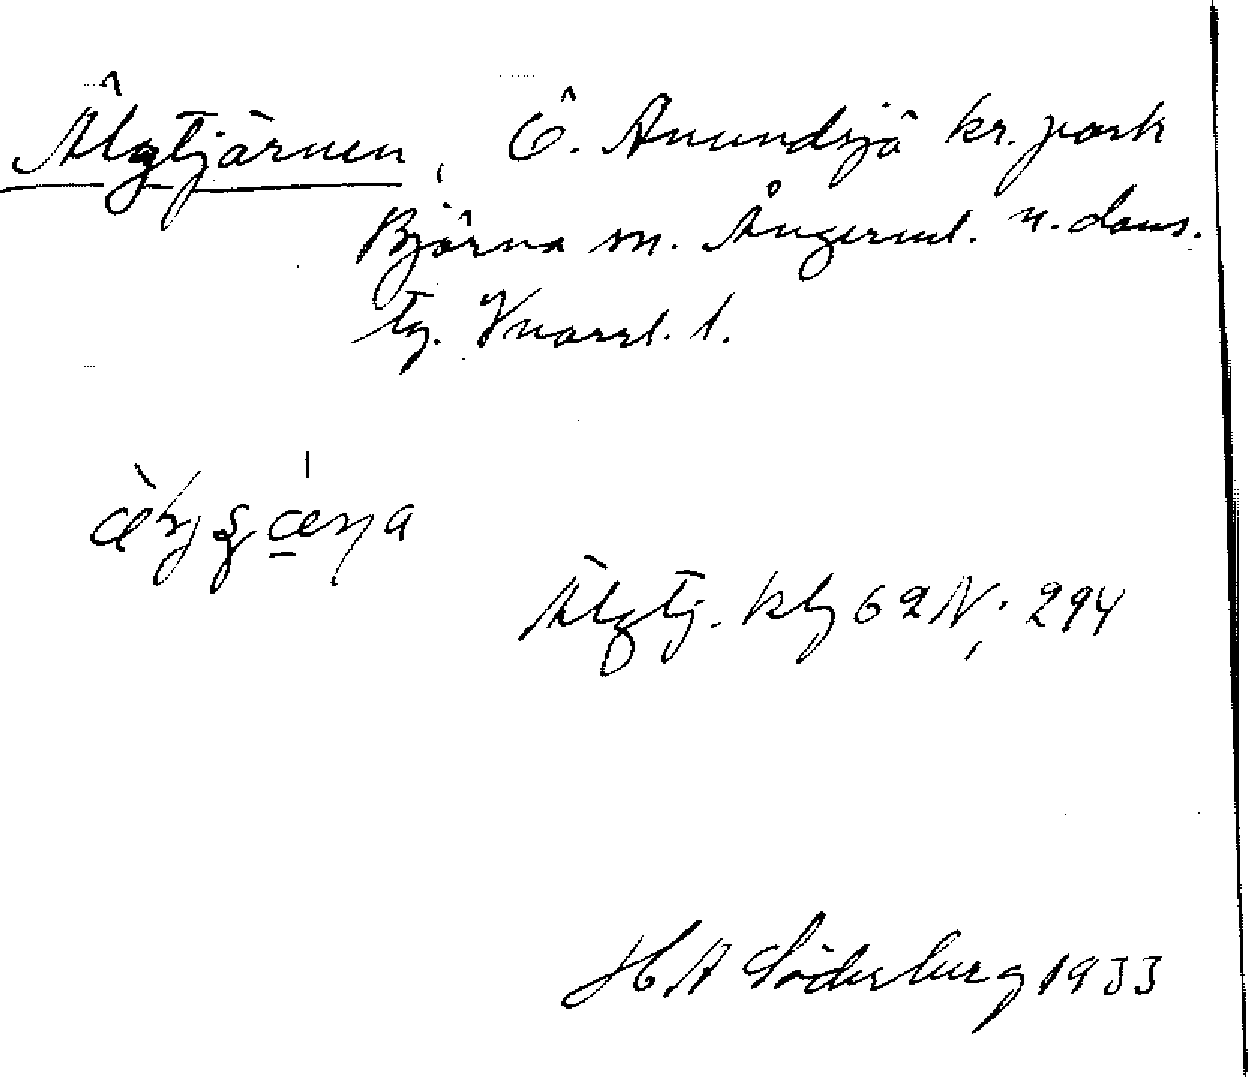 Älgtjärnen, Ö. Anundsjö kr. park
Björna sn. Ångerml. n. doms.
tg. Knorrl. l.
Älgtj. kbl 62 N; 294
H A Söderberg 1933